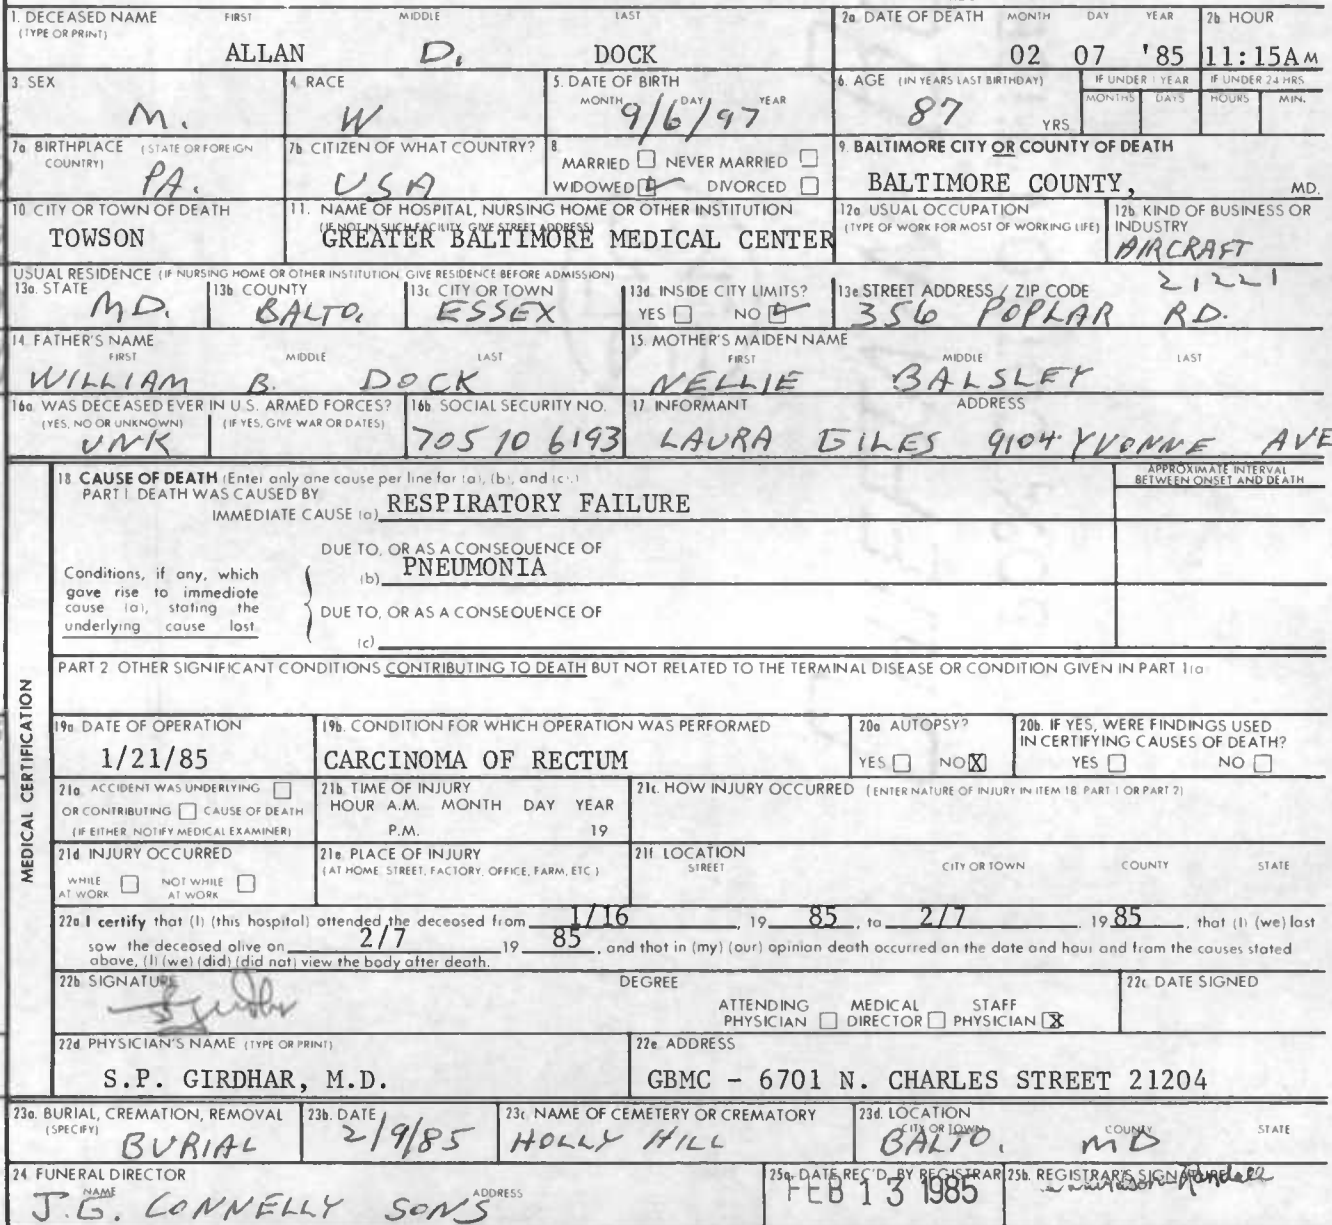 1. DECEASED NAME FIRST MIDDLE LAST
(TYPE OR PRINT)
ALLAN D. DOCK
2a DATE OF DEATH MONTH DAY YEAR
02 07 '85
2b HOUR
11:15A M
3. SEX
M.
4. RACE
W
5. DATE OF BIRTH
MONTH DAY YEAR
9/6/97
6. AGE (IN YEARS LAST BIRTHDAY)
87 YRS
IF UNDER 1 YEAR
MONTHS DAYS
IF UNDER 24 HRS.
HOURS MIN.
7a BIRTHPLACE (STATE OR FOREIGN
COUNTRY)
PA.
7b CITIZEN OF WHAT COUNTRY?
USA
8
MARRIED NEVER MARRIED
WIDOWED DIVORCED
9. BALTIMORE CITY OR COUNTY OF DEATH
BALTIMORE COUNTY, MD.
10 CITY OR TOWN OF DEATH
TOWSON
11. NAME OF HOSPITAL, NURSING HOME OR OTHER INSTITUTION
(IF NOT IN SUCH FACILITY, GIVE STREET ADDRESS)
GREATER BALTIMORE MEDICAL CENTER
12a USUAL OCCUPATION
(TYPE OF WORK FOR MOST OF WORKING LIFE)
12b KIND OF BUSINESS OR
INDUSTRY
AIRCRAFT
USUAL RESIDENCE (IF NURSING HOME OR OTHER INSTITUTION GIVE RESIDENCE BEFORE ADMISSION)
13a. STATE
MD.
13b COUNTY
BALTO.
13c CITY OR TOWN
ESSEX
13d. INSIDE CITY LIMITS?
YES NO
13e STREET ADDRESS / ZIP CODE
21221
356 POPLAR RD.
14. FATHER'S NAME
FIRST MIDDLE LAST
WILLIAM B. DOCK
15. MOTHER'S MAIDEN NAME
FIRST MIDDLE LAST
NELLIE BALSLEY
16a WAS DECEASED EVER IN U.S. ARMED FORCES?
(YES, NO OR UNKNOWN) (IF YES, GIVE WAR OR DATES)
UNK
16b SOCIAL SECURITY NO.
705 10 6193
17 INFORMANT ADDRESS
LAURA GILES 9104 YVONNE AVE
18 CAUSE OF DEATH (Enter only one cause per line for (a), (b), and (c).)
PART I. DEATH WAS CAUSED BY
IMMEDIATE CAUSE (a) RESPIRATORY FAILURE
APPROXIMATE INTERVAL
BETWEEN ONSET AND DEATH
DUE TO, OR AS A CONSEQUENCE OF
(b) PNEUMONIA
Conditions, if any, which
gave rise to immediate
cause (a), stating the
underlying cause last
DUE TO, OR AS A CONSEQUENCE OF
(c)
PART 2 OTHER SIGNIFICANT CONDITIONS CONTRIBUTING TO DEATH BUT NOT RELATED TO THE TERMINAL DISEASE OR CONDITION GIVEN IN PART 1(a)
MEDICAL CERTIFICATION
19a DATE OF OPERATION
1/21/85
19b. CONDITION FOR WHICH OPERATION WAS PERFORMED
CARCINOMA OF RECTUM
20a AUTOPSY?
YES NO X
20b. IF YES, WERE FINDINGS USED
IN CERTIFYING CAUSES OF DEATH?
YES NO
21a ACCIDENT WAS UNDERLYING
OR CONTRIBUTING CAUSE OF DEATH
(IF EITHER, NOTIFY MEDICAL EXAMINER)
21b TIME OF INJURY
HOUR A.M. MONTH DAY YEAR
P.M. 19
21c. HOW INJURY OCCURRED (ENTER NATURE OF INJURY IN ITEM 18 PART 1 OR PART 2)
21d INJURY OCCURRED
WHILE AT WORK NOT WHILE AT WORK
21e PLACE OF INJURY
(AT HOME, STREET, FACTORY, OFFICE, FARM, ETC)
21f LOCATION
STREET CITY OR TOWN COUNTY STATE
22a I certify that (I) (this hospital) attended the deceased from 1/16 19 85, to 2/7 19 85, that (I) (we) last
saw the deceased alive on 2/7 19 85, and that in (my) (our) opinion death occurred on the date and hour and from the causes stated
above, (I) (we) (did) (did not) view the body after death.
22b SIGNATURE DEGREE
ATTENDING PHYSICIAN MEDICAL DIRECTOR STAFF PHYSICIAN X
22c DATE SIGNED
22d PHYSICIAN'S NAME (TYPE OR PRINT)
S.P. GIRDHAR, M.D.
22e ADDRESS
GBMC - 6701 N. CHARLES STREET 21204
23a. BURIAL, CREMATION, REMOVAL
(SPECIFY)
BURIAL
23b. DATE
2/9/85
23c NAME OF CEMETERY OR CREMATORY
HOLLY HILL
23d. LOCATION
CITY OR TOWN COUNTY STATE
BALTO. MD
24 FUNERAL DIRECTOR
NAME ADDRESS
J.G. CONNELLY SONS
25a DATE REC'D. BY REGISTRAR
FEB 13 1985
25b. REGISTRAR'S SIGNATURE